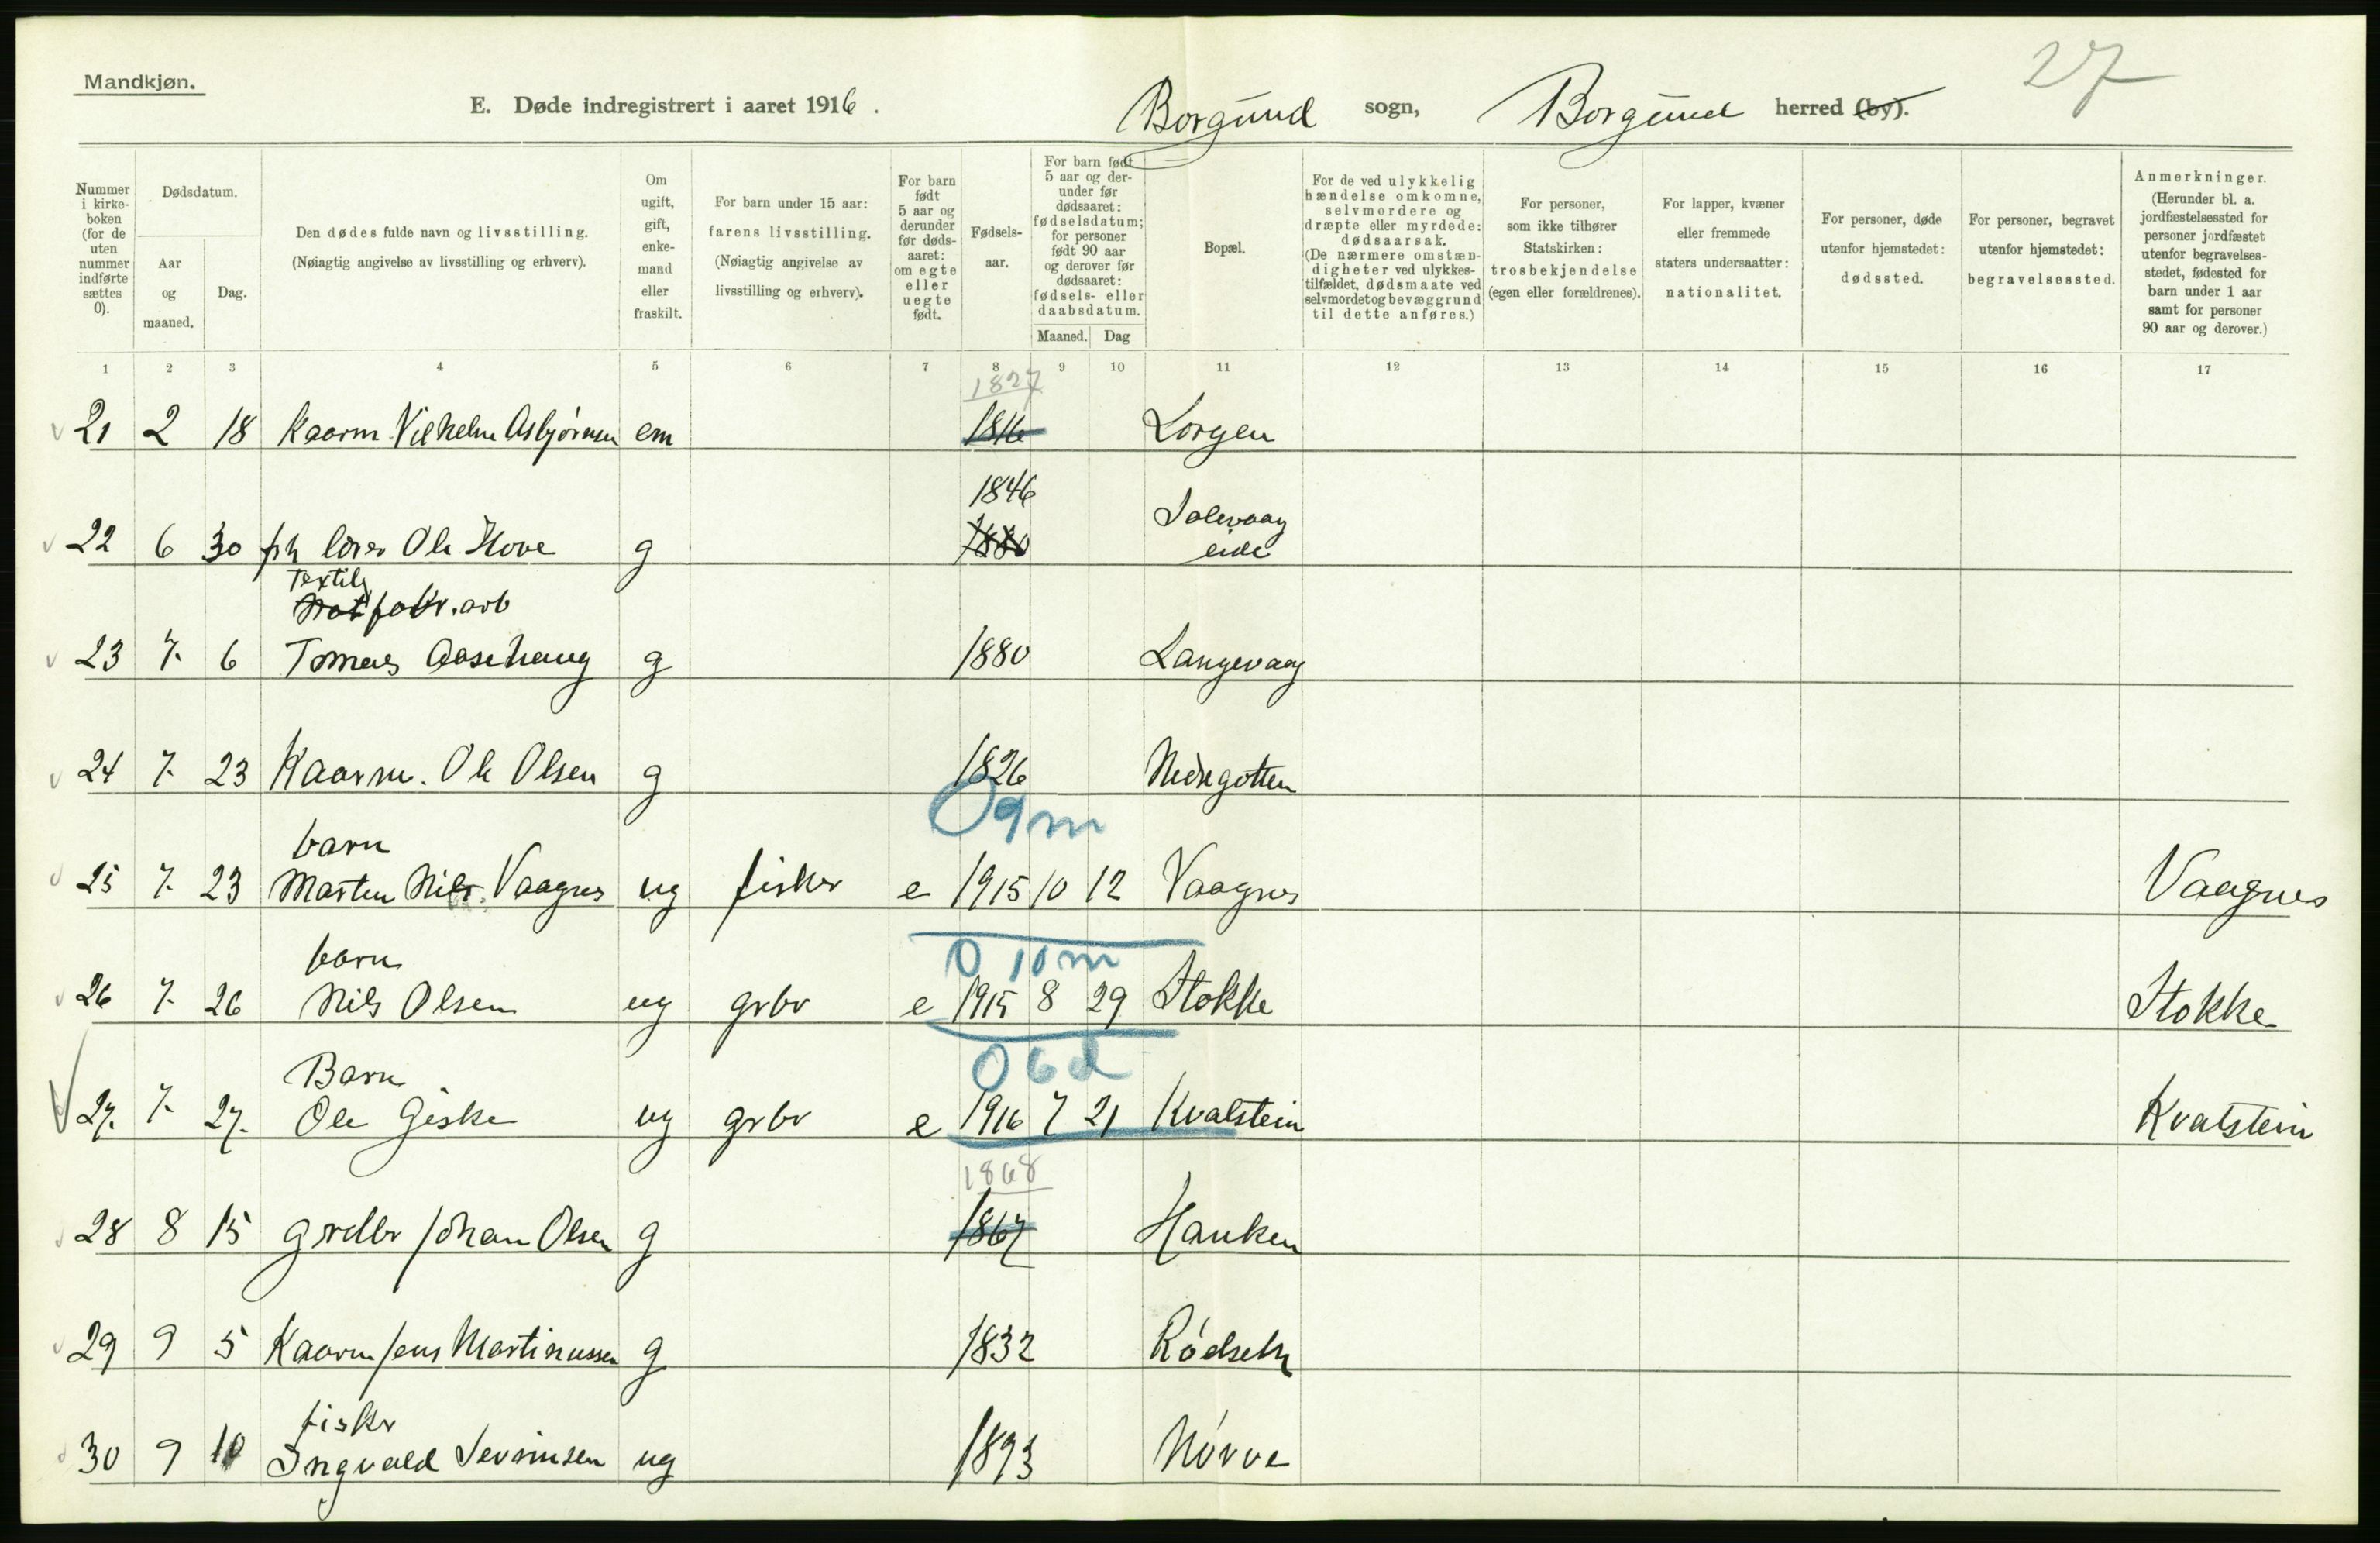 Mandkjøn.
27
E. Døde indregistrert i aaret 1916. Borgund sogn, Borgund herred (by).
Nummer i kirke-boken (for de uten nummer indførte sættes 0).
Dødsdatum.
Aar og maaned.
Dag.
Den dødes fulde navn og livsstilling.
(Nøiagtig angivelse av livsstilling og erhverv).
Om ugift, gift, enke-mand eller fraskilt.
For barn under 15 aar: farens livsstilling.
(Nøiagtig angivelse av livsstilling og erhverv).
For barn født 5 aar og derunder før døds-aaret: om egte eller uegte født.
Fødsels-aar.
For barn født 5 aar og der-under før dødsaaret: fødselsdatum; for personer født 90 aar og derover før dødsaaret: fødsels- eller daabsdatum.
Maaned. Dag
Bopæl.
For de ved ulykkelig hændelse omkomne, selvmordere og dræpte eller myrdede: dødsaarsak.
(De nærmere omstæn-digheter ved ulykkes-tilfældet, dødsmaate ved selvmord og bevæggrund til dette anføres.)
For personer, som ikke tilhører Statskirken: trosbekjendelse (egen eller forældrenes).
For lapper, kvæner eller fremmede staters undersaatter: nationalitet.
For personer, døde utenfor hjemstedet: dødssted.
For personer, begravet utenfor hjemstedet: begravelsessted.
Anmerkninger.
(Herunder bl. a. jordfæstelsessted for personer jordfæstet utenfor begravelses-stedet, fødested for barn under 1 aar samt for personer 90 aar og derover.)
1 2 3 4 5 6 7 8 9 10 11 12 13 14 15 16 17
1827
21 2 18 Kaarm. Vilhelm Asbjørnsen em 1816 Lorgen
1846
22 6 30 fh lærer Ole Hove g 1880 Solevaag eide
Textil
Not fabr. arb
23 7. 6 Tomas Aasehaug g 1880 Langevaag
24 7. 23 Kaarm. Ole Olsen g 1826 Nedregotten
0 9 m
barn
25 7. 23 Marten Nils. Vaagnes ug fisker e 1915 10 12 Vaagnes Vaagnes
0 10 m
barn
26 7. 26 Nils Olsen ug grbr e 1915 8 29 Stokke Stokke
0 6 d
Barn
27. 7. 27. Ole Giske ug grbr e 1916 7 21 Kvalstein Kvalstein
1868
28 8 15 grdbr Johan Olsen g 1867 Hanken
29 9 5 Kaarm Jens Martinussen g 1832 Rødseth
fisker
30 9 10 Ingvald Sevrinsen ug 1893 Nørve